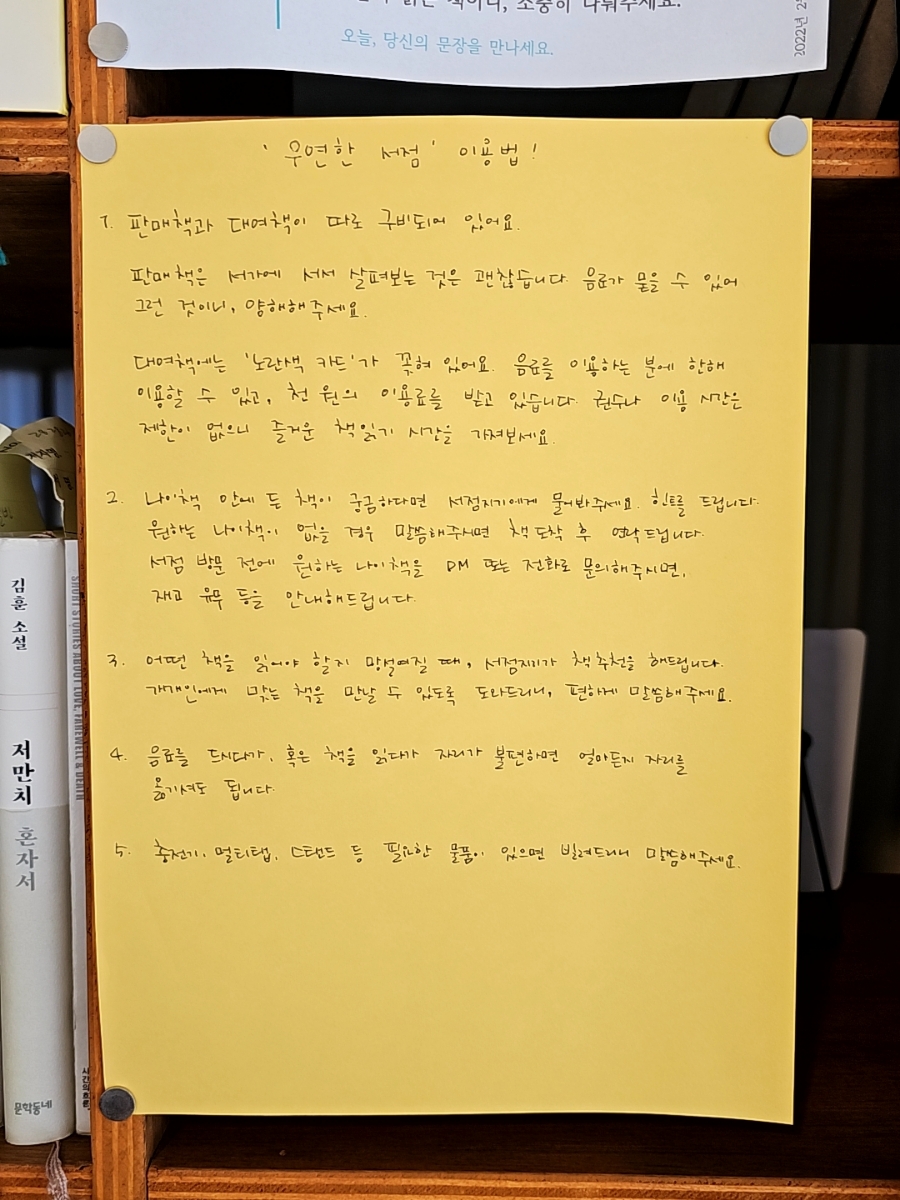 책이니, 소중히 나눠주세요.
오늘, 당신의 문장을 만나세요.
2022년
'우연한 서점' 이용법!
1. 판매책과 대여책이 따로 구비되어 있어요.
판매책은 서가에 서서 살펴보는 것은 괜찮습니다. 음료가 묻을 수 있어
그런 것이니, 양해해주세요.
대여책에는 '노란색 카드'가 꽂혀 있어요. 음료를 이용하는 분에 한해
이용할 수 있고, 천 원의 이용료를 받고 있습니다. 권수나 이용 시간은
제한이 없으니 즐거운 책읽기 시간을 가져보세요.
2. 나이책 안에 든 책이 궁금하다면 서점지기에게 물어봐주세요. 힌트를 드립니다.
원하는 나이책이 없을 경우 말씀해주시면 책 도착 후 연락드립니다.
서점 방문 전에 원하는 나이책을 DM 또는 전화로 문의해주시면,
재고 유무 등을 안내해드립니다.
3. 어떤 책을 읽어야 할지 망설여질 때, 서점지기가 책 추천을 해드립니다.
개개인에게 맞는 책을 만날 수 있도록 도와드리니, 편하게 말씀해주세요.
4. 음료를 드시다가, 혹은 책을 읽다가 자리가 불편하면 얼마든지 자리를
옮기셔도 됩니다.
5. 충전기, 멀티탭, C탠드 등 필요한 물품이 있으면 빌려드리니 말씀해주세요.
김훈 소설
저만치 혼자서
문학동네
SHORT STORIES ABOUT LOVE, FAREWELL & DEATH
시간의흐름